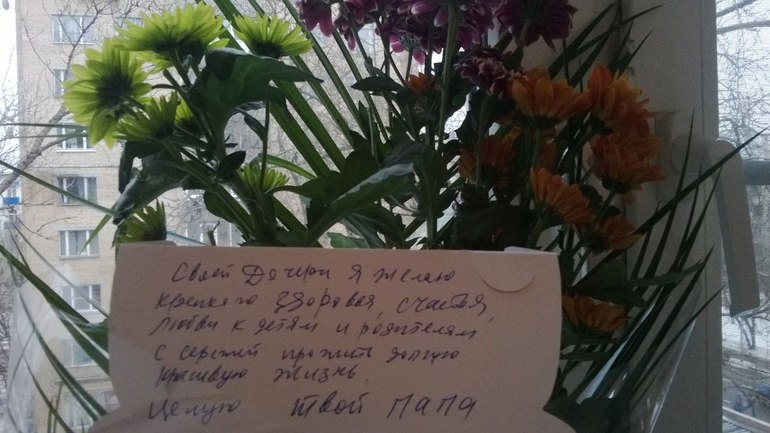 Своей Дочери я желаю
крепкого здоровья, счастья,
любви к детям и родителям,
с сержей прожить долгую
красивую жизнь.
Целую твой папа